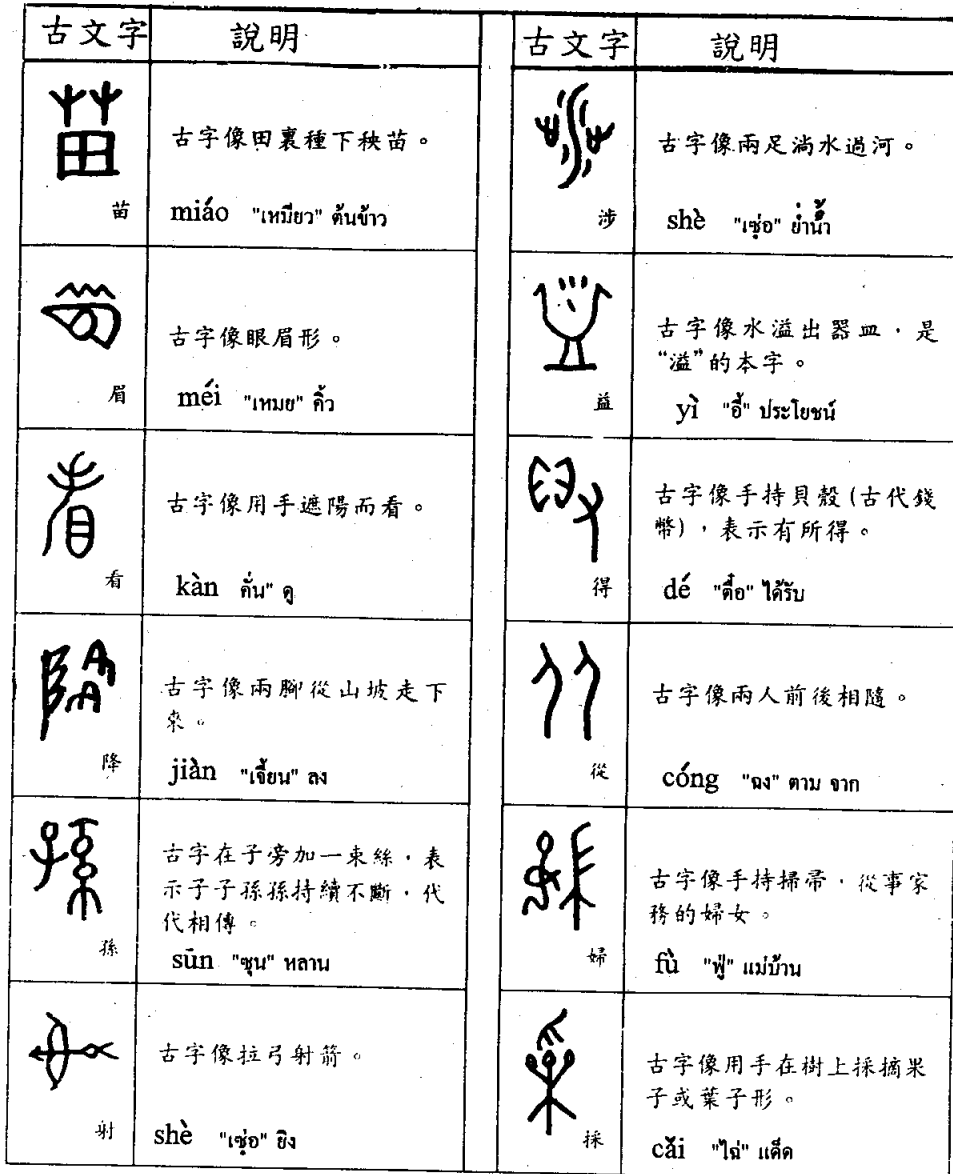 古文字 說明
苗
古字像田裏種下秧苗。
miáo "เหมียว" ต้นข้าว
眉
古字像眼眉形。
méi "เหมย" คิ้ว
看
古字像用手遮陽而看。
kàn คั่น" ดู
降
古字像兩腳從山坡走下
來。
jiàn "เจี้ยน" ลง
孫
古字在子旁加一束絲，表
示子子孫孫持續不斷，代
代相傳。
sūn "ซุน" หลาน
射
古字像拉弓射箭。
shè "เซ่อ" ยิง
古文字 說明
涉
古字像兩足淌水過河。
shè "เซ่อ" ย่ำน้ำ
益
古字像水溢出器皿，是
“溢”的本字。
yì "อี้" ประโยชน์
得
古字像手持貝殼(古代錢
幣)，表示有所得。
dé "ตื๋อ" ได้รับ
從
古字像兩人前後相隨。
cóng "ฉง" ตาม จาก
婦
古字像手持掃帚，從事家
務的婦女。
fù "ฟู่" แม่บ้าน
採
古字像用手在樹上採摘果
子或葉子形。
cǎi "ไฉ่" แด็ด